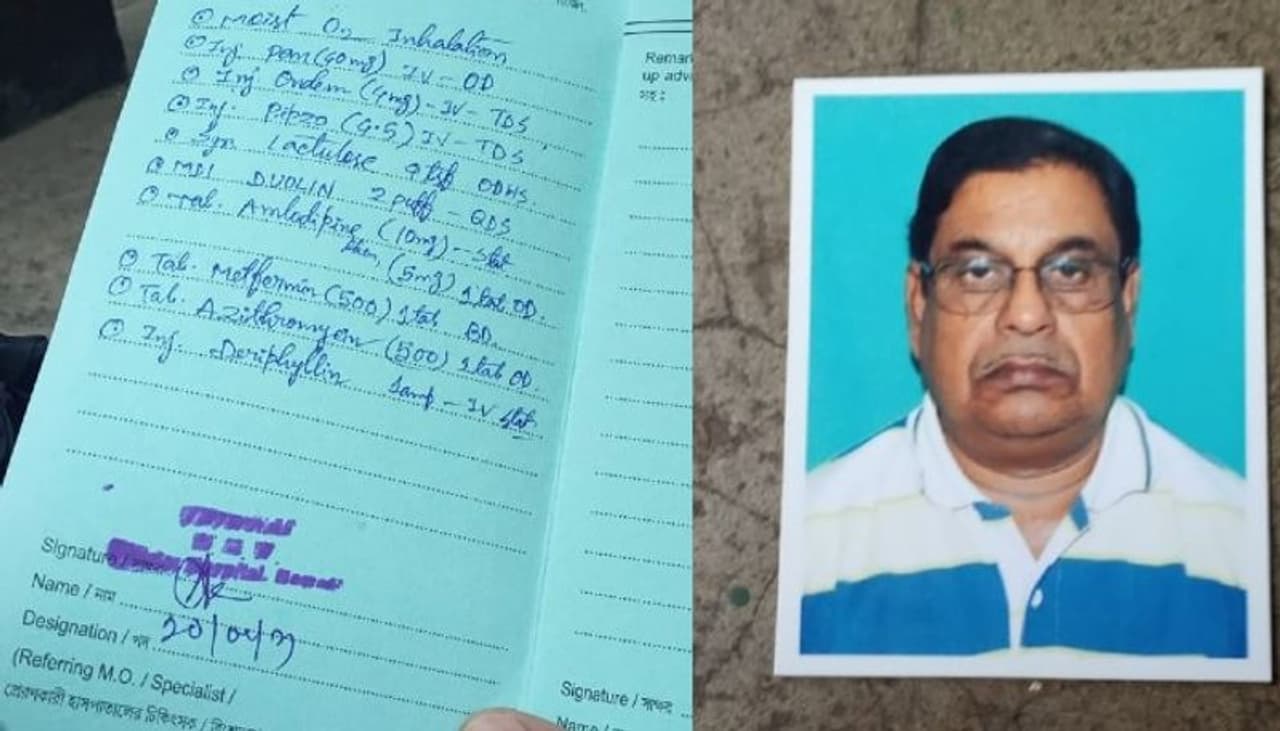 ① Moist O2 Inhalation
① Inj Pan (40mg) IV - OD
① Inj Ondem (4mg) - IV - TDS
① Inj. Pipzo (4.5) IV - TDS
① Syr. Lactulose tsf ODHS.
① MDI DUOLIN 2 puff - QDS
① Tab. Amlodipine (10mg) - stat
then, (5mg) 1 tab OD.
① Tab. Metformin (500) 1 tab BD.
① Tab. Azithromycin (500) 1 tab OD.
① Inj. Deriphyllin 1amp - IV stat
Signature /
Hospital
Name / নাম
Designation / পদ
(Referring M.O. / Specialist /
প্রেরণকারী হাসপাতালের চিকিৎসক /
Remar
up advi
Signature / স্বাক্ষর
Name / নাম